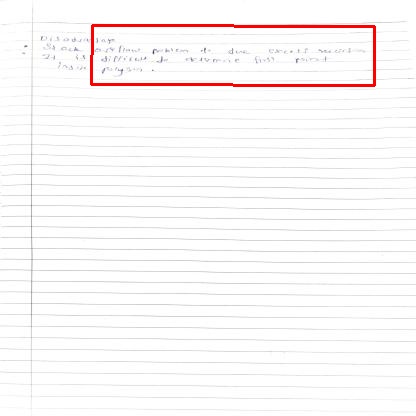 Disadvantage
Stack overflow problem to due excess recursion
It is difficult to determine first point
inside polygon.